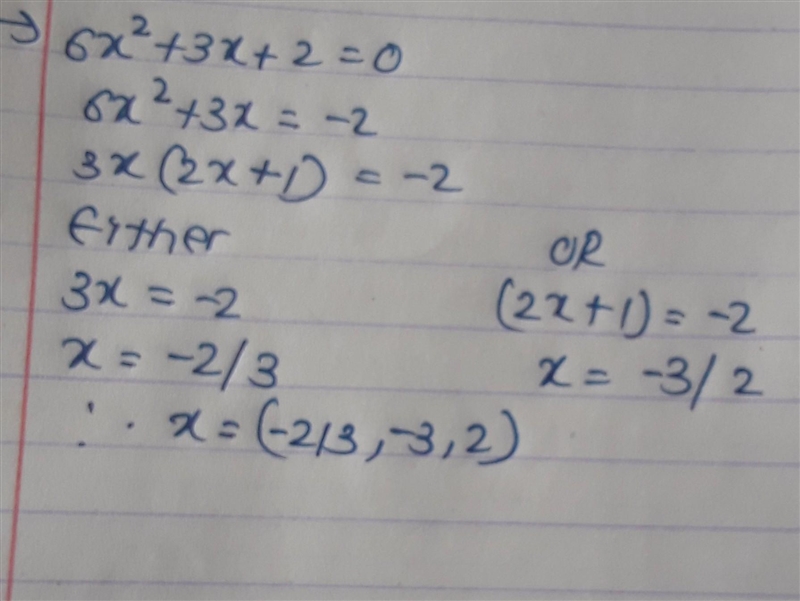 → 6x²+3x+2=0
6x²+3x = -2
3x(2x+1) = -2
Either OR
3x = -2 (2x+1) = -2
x = -2/3 x = -3/2
∴ x = (-2/3, -3, 2)